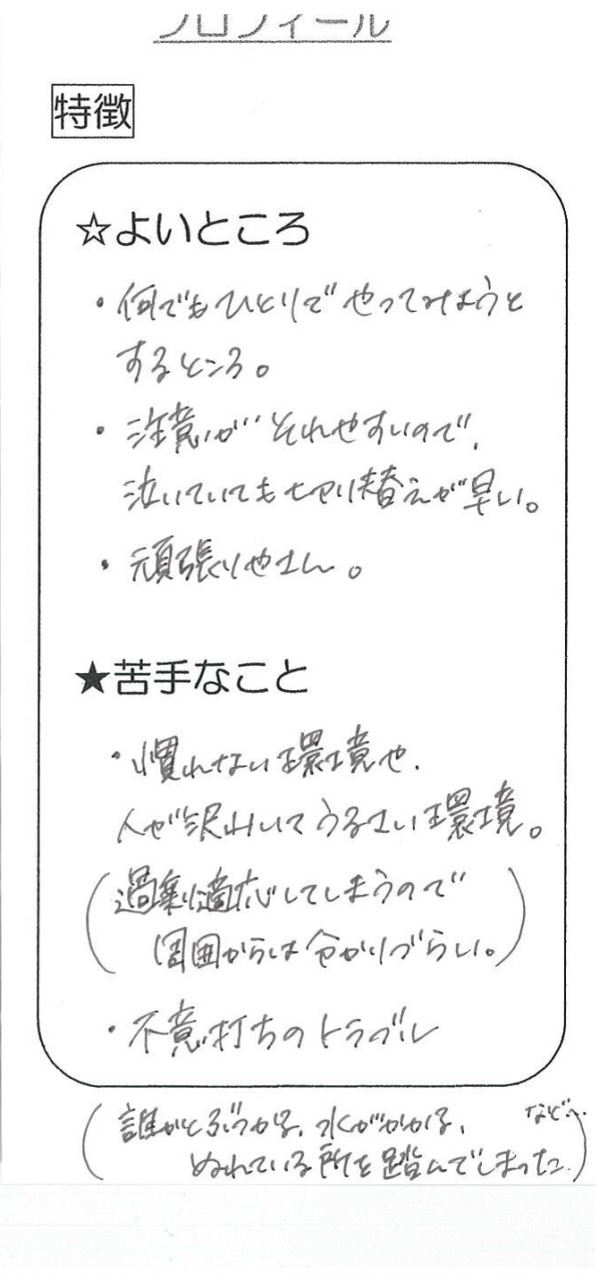 プロフィール
特徴
☆よいところ
・何でもひとりでやってみようと
するところ。
・注意がそれやすいので、
泣いていても切り替えが早い。
・頑張りやさん。
★苦手なこと
・慣れない環境や、
人が沢山いてうるさい環境。
(過剰適応してしまうので
周囲からは分かりづらい。)
・不意打ちのトラブル
(誰かとぶつかる、水がかかる、など
ぬれている所を踏んでしまった)